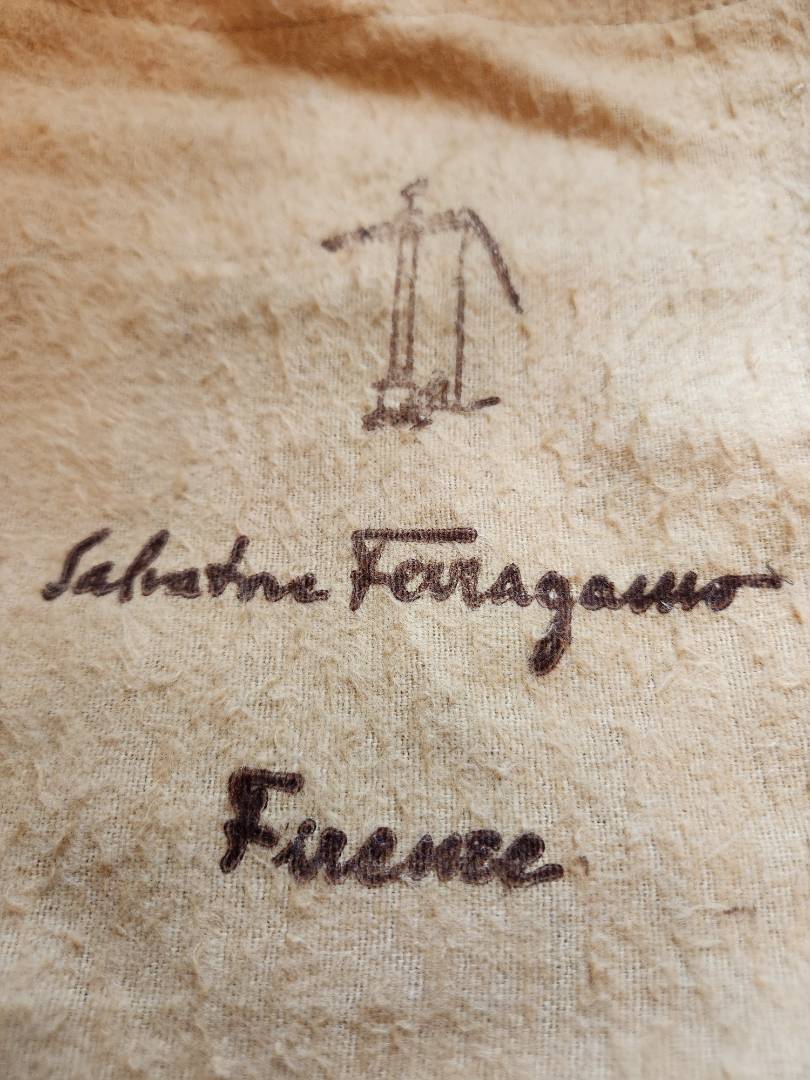 Salvatore Ferragamo
Firenze